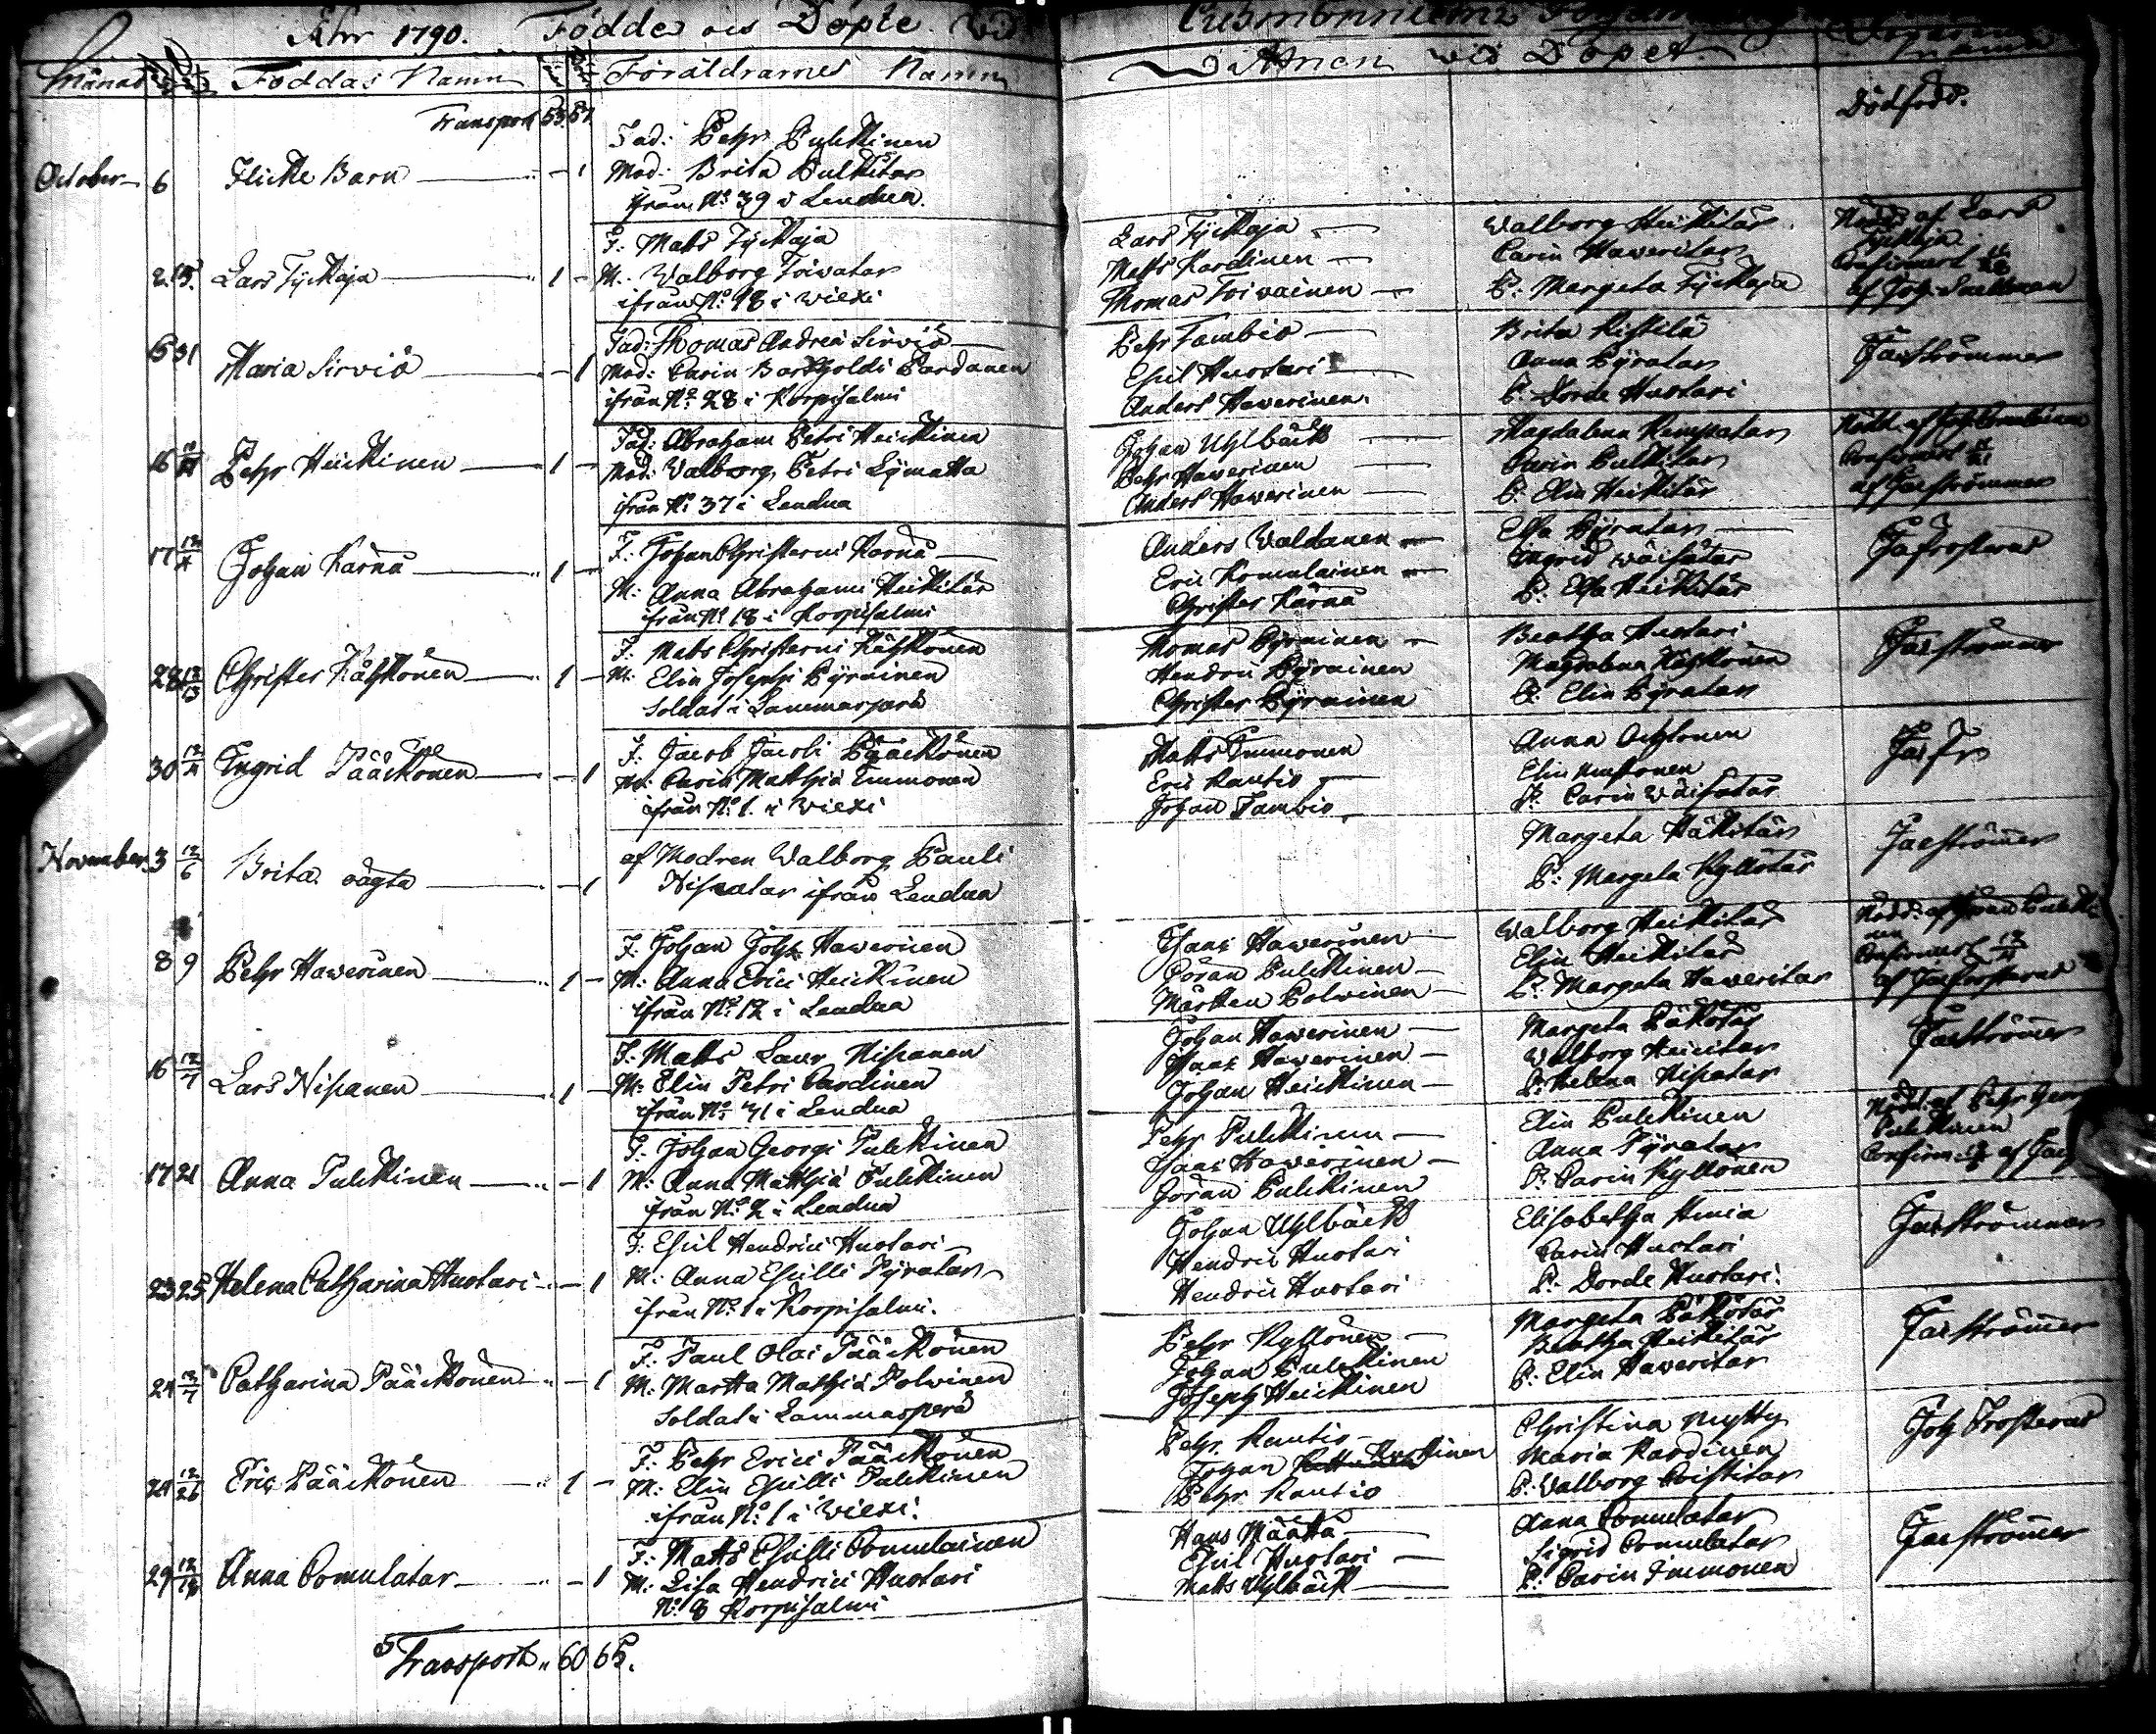 Åhr 1790. Födde och Döpte
Månad Föddas Namn Föräldrarnes Namn
Wittnen wid Döpet
Transport 53. 57.
October 6 Flicke Barn 1
Fad: Pehr Pulckinen
Mod: Brita Pulkitar
ifrån No: 39 i Lendua.
Dödfödd.
Lars Tyckaja 1
F: Matts Tyckaja
M: Walborg Toivatar
ifrån No: 98 i Wiexi
Lars Tyckaja
Matts Kardinen
Thomas Toivainen
Walborg Heickitär
Carin Haweritar
P: Margeta Tyckaja
Nödd: af Lars
Tyckaja
Confirmert
31 Maria Sirviö 1
Fad: Thomas Andreæ Sirviö
Mod: Carin Bartholdi Pardanen
ifrån No: 28 i Korpisalmi
Pehr Tambio
Eskil Huotari
Anders Hawerinen
Brita Kisselä
Anna Pyratar
P: Dorde Huotari
Jac Strömmer
16 Pehr Heickinen 1
Fad: Abraham Petri Heickinen
Mod: Walborg Petri Lymatta
ifrån No: 37 i Lendua
Johan Uhlbäck
Pehr Hawerinen
Anders Hawerinen
Magdalena Kempatar
Carin Pulkitar
P: Elin Heickitär
Confirmert
af Jac Strömmer
17 Johan Kärnä 1
F: Johan Christerni Kärnä
M: Anna Abrahami Heickitär
ifrån No 18 i Korpisalmi
Anders Waldanen
Eric Komulainen
Christer Kärnä
Elsa Pyratar
Ingrid Wäisätär
P: Elsa Heickitär
Ja Frosterus
28 Christer Kähkönen 1
F: Mats Christerni Kähkönen
M: Elin Josephi Pyrainen
Soldat i Lammasperä
Thomas Pyrainen
Hendric Pyrainen
Christer Pyrainen
Beatha Huotari
Magdalena Kähkönen
P: Elin Pyratar
Jac Strömmer
30 12/4 Ingrid Pääckönen 1
F: Jacob Jacobi Pääckönen
M: Carin Matthiæ Immonen
ifrån No: 1. i Wiexi
Matts Immonen
Eric Rautio
Johan Tambio
Anna
Elin Mustonen
P: Carin Wäisätär
Ja: Fr
November 3 12/6 Brita oägta 1
af Modren Walborg Pauli
Niskatar ifrån Lendua
Margeta Häkitär
P: Margeta Kyllötär
Jac Strömmer
8 9 Pehr Hawerinen 1
F: Johan Joh: Hawerinen
M: Anna Erici Heickinen
ifrån No: 12 i Lendua
Hans Hawerinen
Göran Pulckinen
Mårten Polwinen
Walborg Heickitär
Elin Heickitär
P: Margeta Haweritar
Nödd: af Göran Pulcki
nen
Confirmert
af Ja Frosterus
16 12/7 Lars Niskanen 1
F: Matts Laur Niskanen
M: Elin Petri Cardinen
ifrån No: 31 i Lendua
Johan Hawerinen
Hans Hawerinen
Johan Heickinen
Margeta Päkötär
Walborg Heicitar
P: Helena Niskatar
Jac Strömmer
17 21 Anna Pulckinen 1
F: Johan Georgi Pulckinen
M: Anna Matthiæ Pulckinen
ifrån No: 2 i Lendua
Pehr Pulckinen
Hans Hawerinen
Göran Pulckinen
Elin Pulckinen
Anna Pyratar
P: Carin Kyllönen
Nödd: af Pehr Georg
Pulckinen
Confirm: af Jac
23 25 Helena Catharina Huotari 1
F: Eskil Hendrici Huotari
M: Anna Eskilli Pyratar
ifrån No: 1 i Korpisalmi.
Johan Uhlbäck
Hendric Huotari
Hendric Huotari
Elisabetha
Carin Huotari
P: Dorde Huotari.
Jac Strömmer
24 12/7 Catharina Pääckönen 1
F: Paul Olai Pääckönen
M: Martta Mathiæ Polvinen
Soldat i Lammasperä
Pehr Kyllönen
Johan Pulckinen
Joseph Heickinen
Margeta Päkötär
Beatha Heickitär
P: Elin Haweritar
Jac Strömmer
24 12/26 Eric Pääckönen 1
F: Pehr Erici Pääckönen
M: Elin Eskilli Pulckinen
ifrån No: 1 i Wiexi.
Pehr Rautio
Johan
Pehr Rautio
Christina Mytty
Maria Kardinen
P: Walborg
Joh Frosterus
29 Anna Comulatar 1
F: Matts Eskilli Comulainen
M: Lisa Hendrici Huotari
No: 8 Korpisalmi
Hans Määttä
Eskil Huotari
Matts Uhlbäck
Anna Comulatar
Sigrid Comulatar
P: Carin Immonen
Jac Strömmer
Transport 60 65.